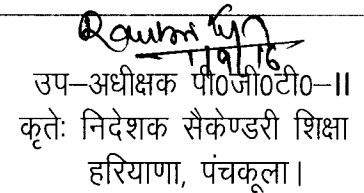 उप–अधीक्षक पी0जी0टी0–II
कृतेः निदेशक सैकेण्डरी शिक्षा
हरियाणा, पंचकूला।